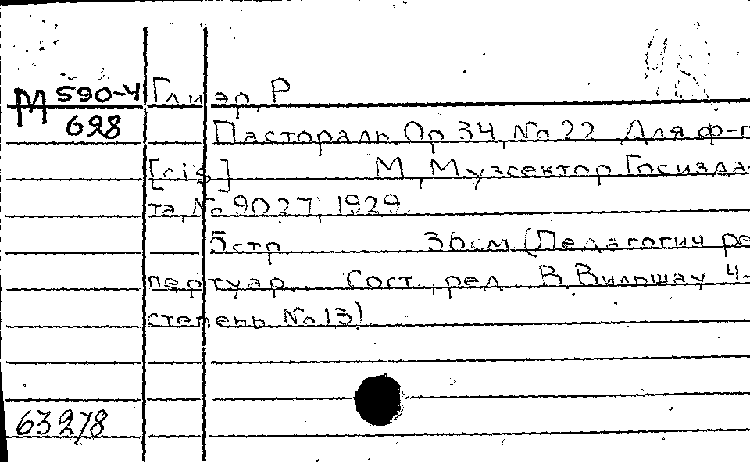 М 590-4 Глиэр, Р
628
Пастораль. Op 34, No 22 Для ф-п
[cis] М, Музсектор Госизда-
та, No 9027, 1929
5 стр 36 см (Педагогич ре-
пертуар Сост, ред В. Вильшау 4-
степень No 13)
63278